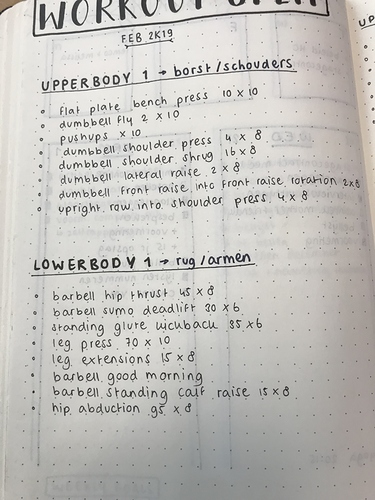 WORKOUT
FEB 2K19
UPPERBODY 1 → borst/schouders
flat plate bench press 10 x 10
dumbbell fly 2 x 10
pushups x 10
dumbbell shoulder press 4 x 8
dumbbell shoulder shrug 16 x 8
dumbbell lateral raise 2 x 8
dumbbell front raise into front raise rotation 2x8
upright row into shoulder press 4 x 8
LOWERBODY 1 → rug/armen
barbell hip thrust 45 x 8
barbell sumo deadlift 30 x 6
standing glute kickback 35 x 6
leg press 70 x 10
leg extensions 15 x 8
barbell good morning
barbell standing calf raise 15 x 8
hip abduction 95 x 8